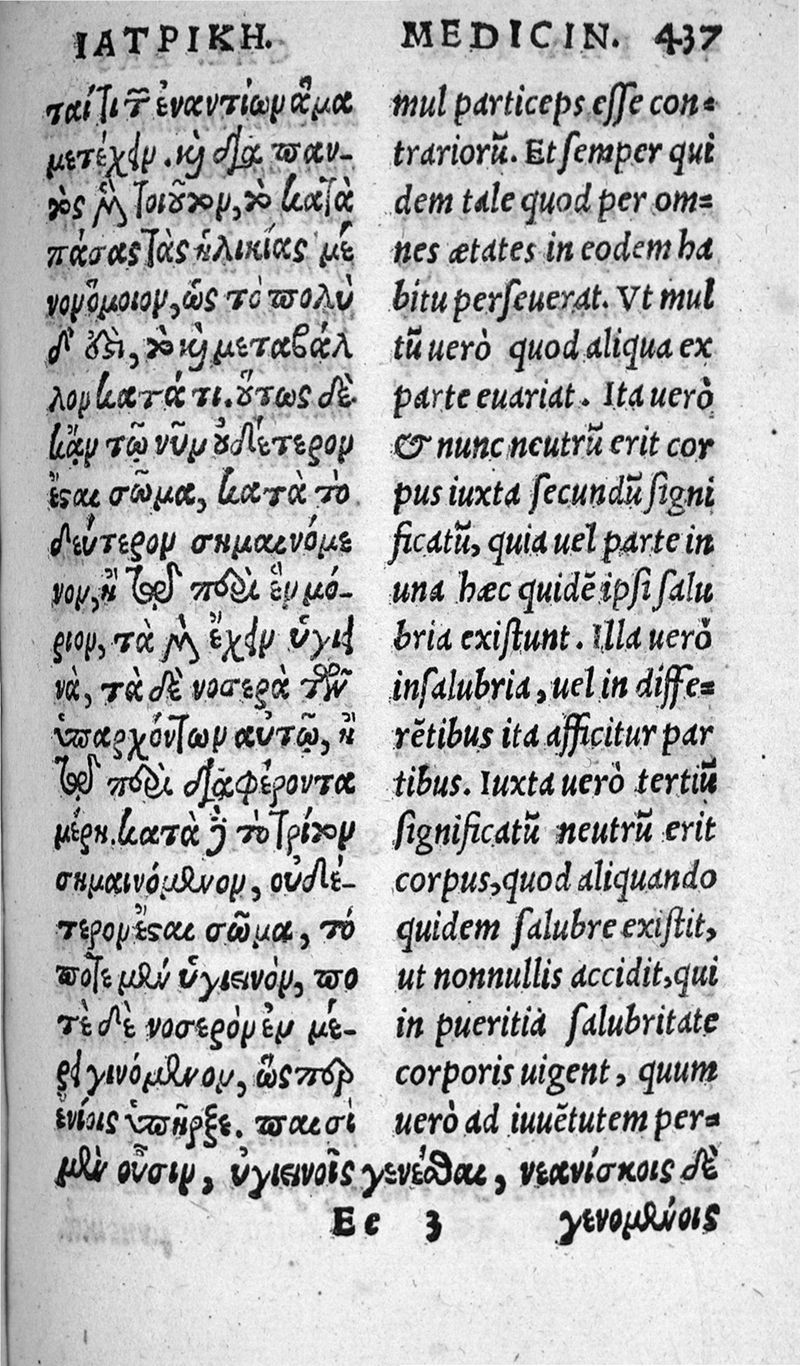 ΙΑΤΡΙΚΗ.
ταί τι τῶν ἐναντίων ἅμα
μετέχειν. καὶ διὰ παν-
τὸς μὲν τοιοῦτον, τὸ κατὰ
πάσας τὰς ἡλικίας μέ
νον ὅμοιον, ὡς τὸ πολὺ
δ' ἐστὶ, τὸ καὶ μεταβάλ
λον κατά τι. οὕτως δὲ
κἂν τῷ νῦν οὐδέτερον
ἔσται σῶμα, κατὰ τὸ
δεύτερον σημαινόμε
νον, ἢ τῷ περὶ ἓν μό-
ριον, τὰ μὲν ἔχειν ὑγιει
νὰ, τὰ δὲ νοσερὰ τῶν
ὑπαρχόντων αὐτῷ, ἢ
τῷ περὶ διαφέροντα
μέρη. κατὰ δὲ τὸ τρίτον
σημαινόμενον, οὐδέ-
τερον ἔσται σῶμα, τό
ποτε μὲν ὑγιεινὸν, πο
τὲ δὲ νοσερὸν ἐν μέ-
ρει γινόμενον, ὥσπερ
ἐνίοις ὑπῆρξε. παισὶ
μὲν οὖσιν, ὑγιεινοῖς γενέσθαι, νεανίσκοις δὲ
γενομένοις
MEDICIN. 437
mul particeps esse con=
trariorũ. Et semper qui
dem tale quod per om=
nes ætates in eodem ha
bitu perseuerat. Vt mul
tũ uerò quod aliqua ex
parte euariat. Ita uerò
& nunc neutrũ erit cor
pus iuxta secundũ signi
ficatũ, quia uel parte in
una hæc quidẽ ipsi salu
bria existunt. Illa uerò
insalubria, uel in diffe=
rẽtibus ita afficitur par
tibus. Iuxta uerò tertiũ
significatũ neutrũ erit
corpus, quod aliquando
quidem salubre existit,
ut nonnullis accidit, qui
in pueritia salubritate
corporis uigent, quum
uerò ad iuuẽtutem per=
Ee 3